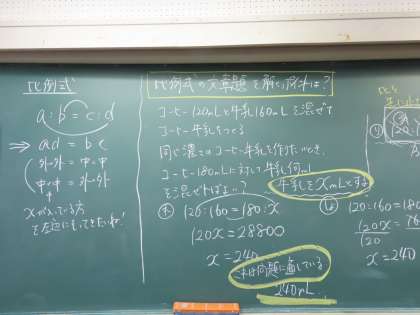 比例式
a:b=c:d
⇒ ad = bc
外×外 = 中×中
中×中 = 外×外
xが入っている方
を左辺にもってきたいね!
比例式の文章題を解くポイントは?
コーヒー120mLと牛乳160mLを混ぜて
コーヒー牛乳をつくる
同じ濃さのコーヒー牛乳を作りたいとき、
コーヒー180mLに対して牛乳何mL
を混ぜればよい?
牛乳をxmLとする
120:160=180:x
120x=28800
x=240
これは問題に適している
240mL
120:160=180
120x
120
x=240